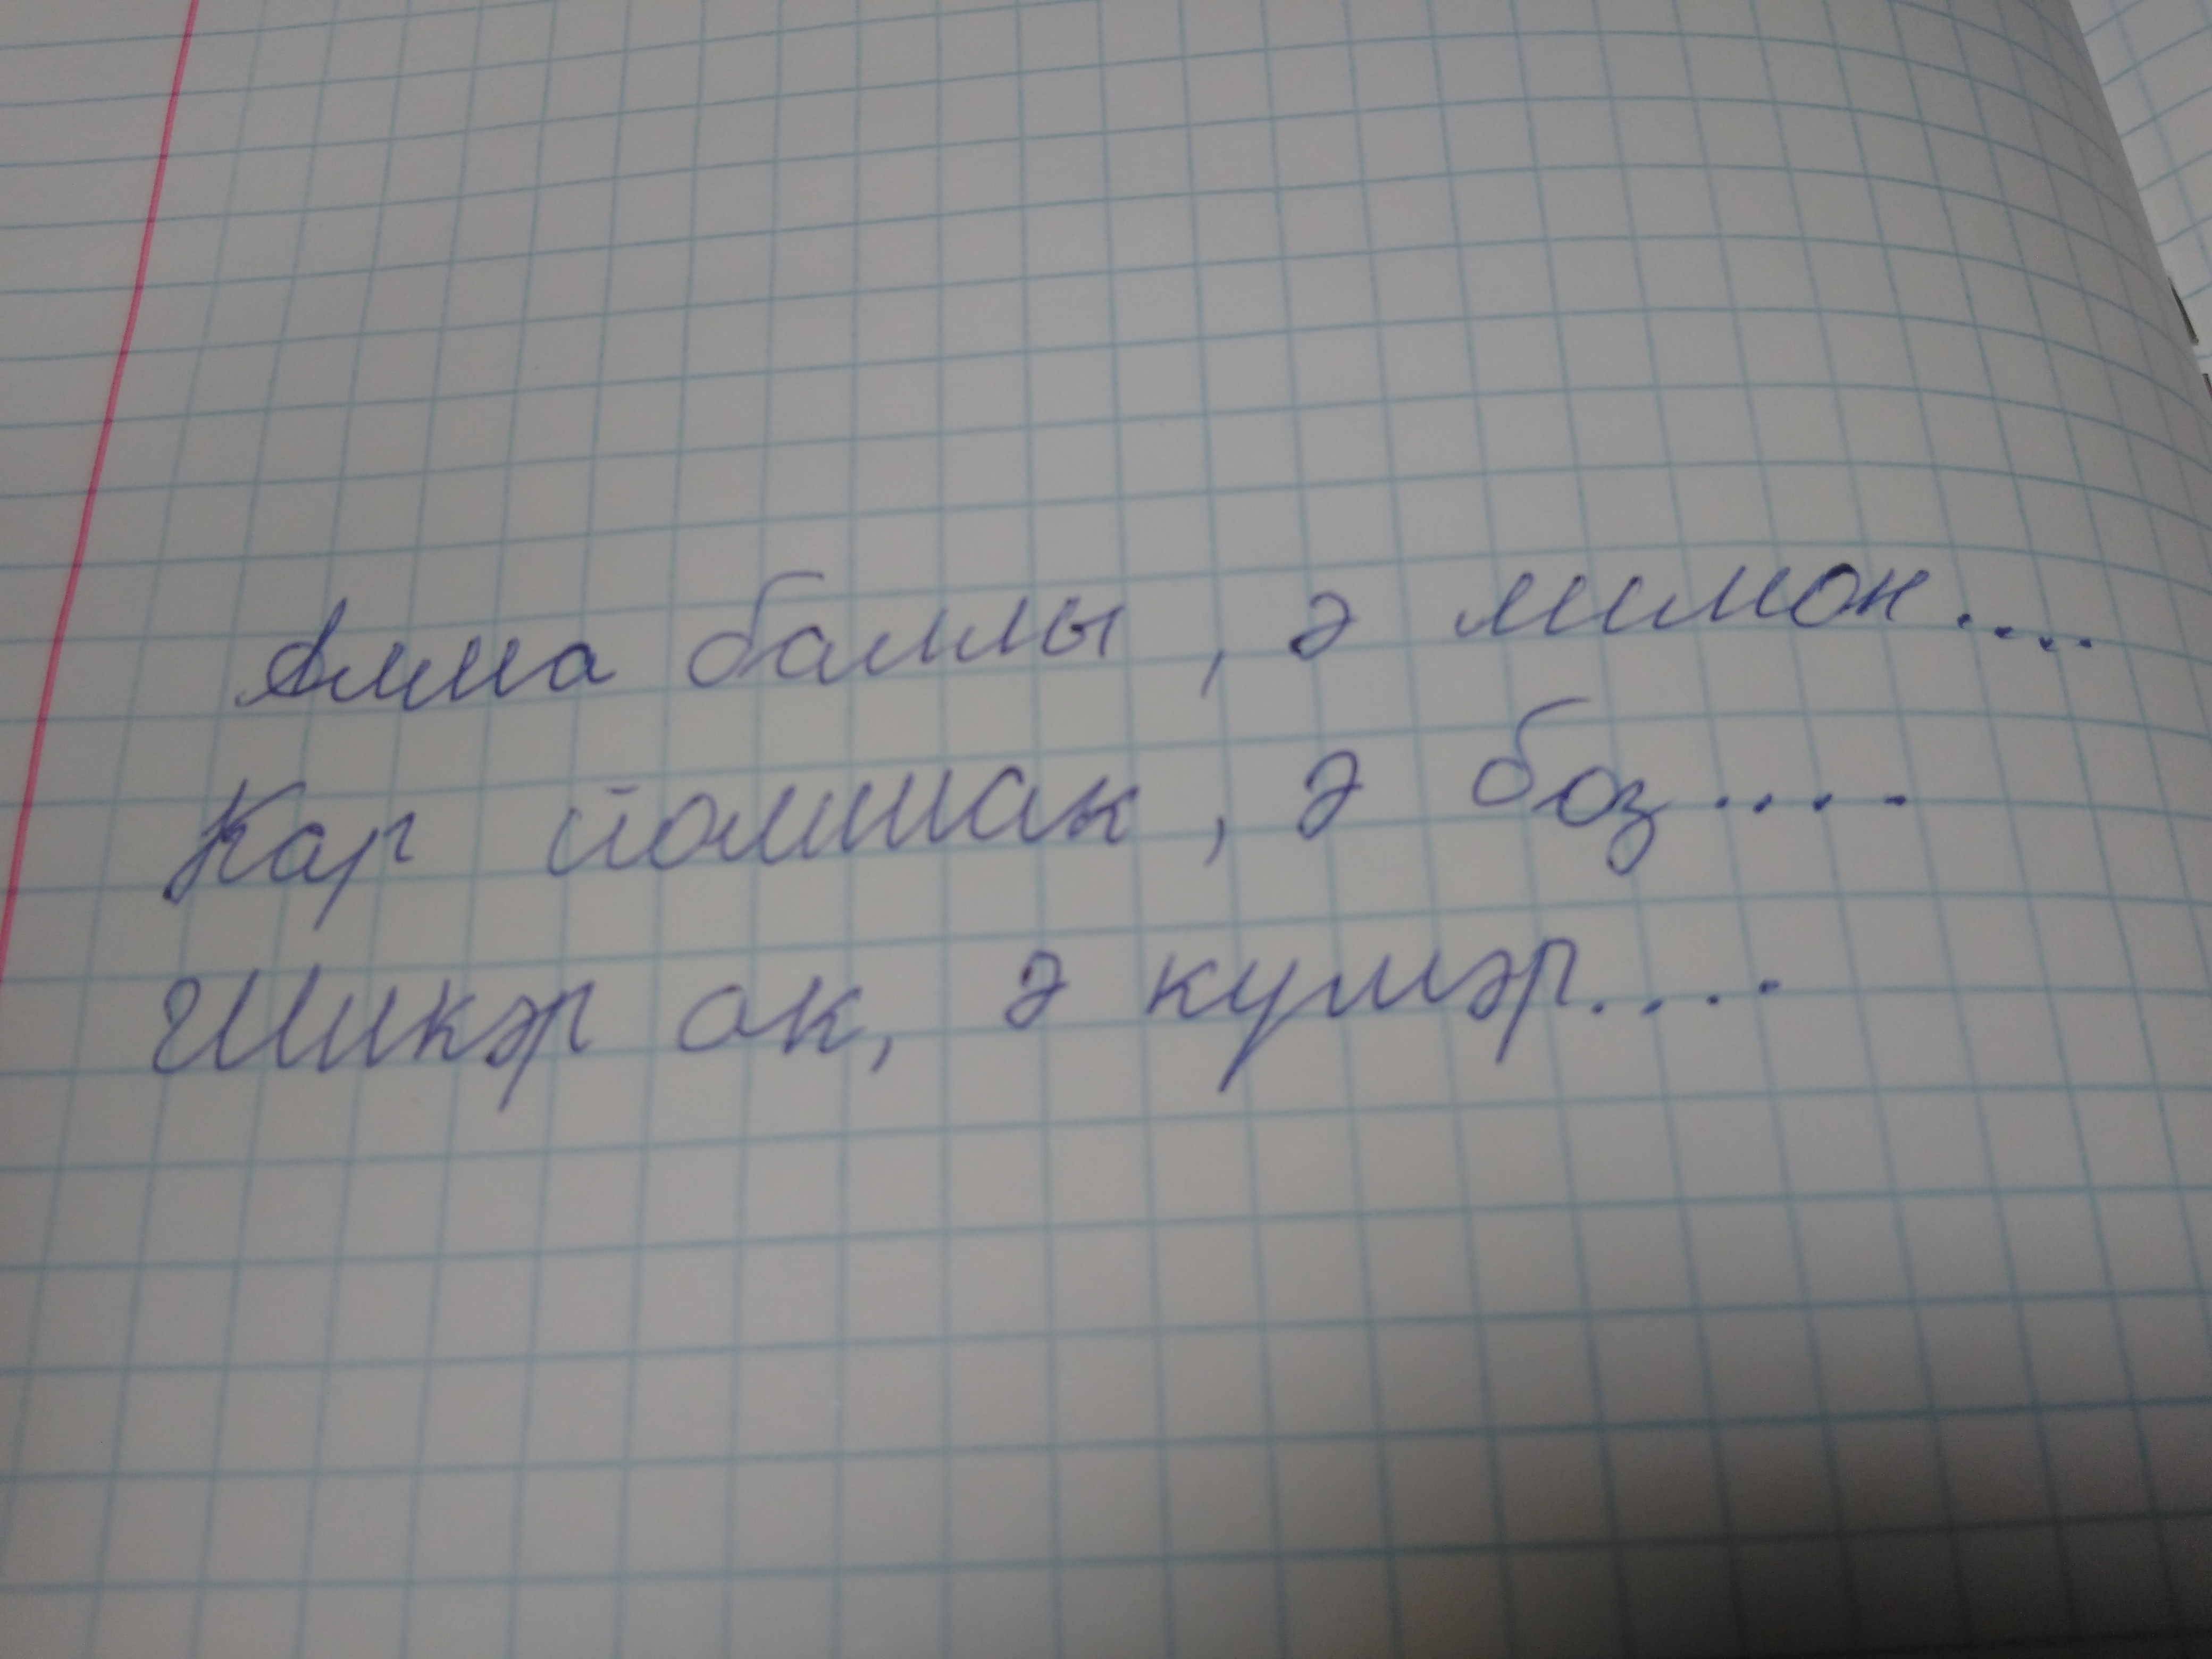 Алма баллы, ә лимон....
Кар йомшак, ә боз....
Шикәр ак, ә күмәр....